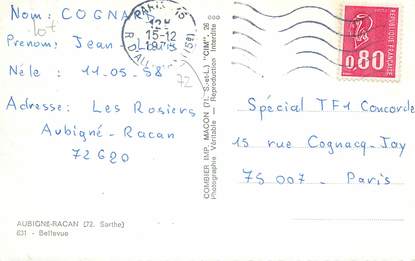 Nom : COGNARD
lot
Prénom : Jean - Louis
Né le : 11-05-58
Adresse : Les Rosiers
Aubigné - Racan
72620
AUBIGNE-RACAN (72. Sarthe)
631 - Bellevue
72
PARIS
15-12
COMBIER IMP. MACON (71. S.-et-L.) "CIM" 26
Photographie Véritable - Reproduction Interdite
REPUBLIQUE FRANCAISE
0,80
Spécial TF1 Concorde
15 rue Cognacq-Jay
75 007 - Paris